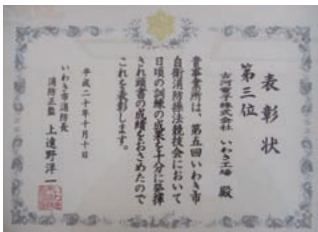 表彰状
第三位
古河電子株式会社 いわき工場 殿
貴事業所は、第五回いわき市
自衛消防操法競技会において
日頃の訓練の成果を十分に発揮
され頭書の成績をおさめたので
これを表彰します。
平成二十年十月十日
いわき市消防長
消防正監 上遠野洋一